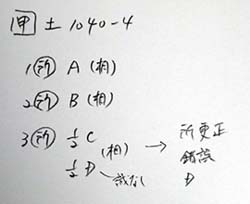 甲 土 1040-4
1 所 A (相)
2 所 B (相)
3 所 1/2 C (相) → 所更正
1/2 D 錯誤
なし D